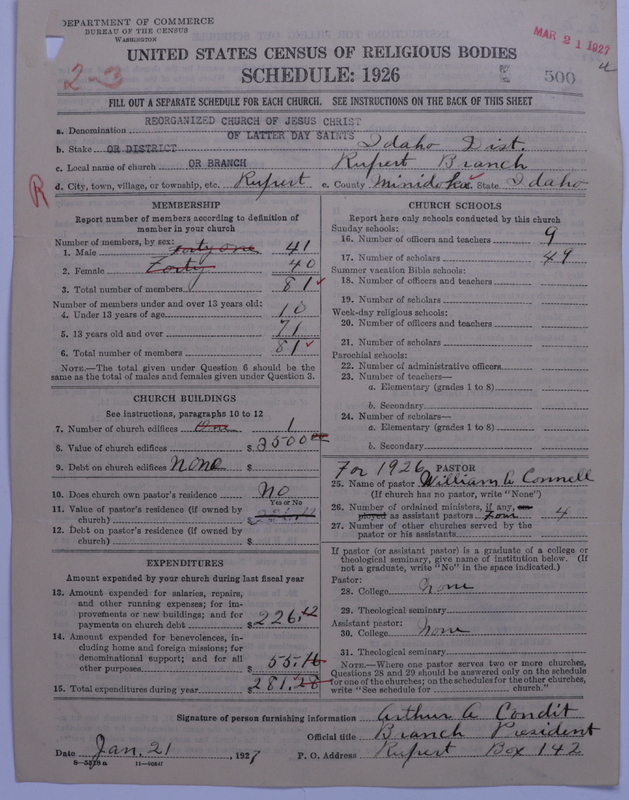 DEPARTMENT OF COMMERCE
BUREAU OF THE CENSUS
WASHINGTON
MAR 21 1927
UNITED STATES CENSUS OF RELIGIOUS BODIES
2-3
SCHEDULE: 1926
500
FILL OUT A SEPARATE SCHEDULE FOR EACH CHURCH. SEE INSTRUCTIONS ON THE BACK OF THIS SHEET
REORGANIZED CHURCH OF JESUS CHRIST
a. Denomination
OF LATTER DAY SAINTS
b. State OR DISTRICT Idaho Dist.
c. Local name of church OR BRANCH Rupert Branch
R
d. City, town, village, or township, etc. Rupert e. County Minidoka State Idaho
MEMBERSHIP
Report number of members according to definition of member in your church
Number of members, by sex:
1. Male forty one 41
2. Female Forty 40
3. Total number of members 81
Number of members under and over 13 years old:
4. Under 13 years of age 10
5. 13 years old and over 71
6. Total number of members 81
NOTE.—The total given under Question 6 should be
same as the total of males and females given under Question 3.
CHURCH BUILDINGS
See instructions, paragraphs 10 to 12
7. Number of church edifices One 1
8. Value of church edifices $ 3500 00
9. Debt on church edifices None $
10. Does church own pastor's residence No
Yes or No
11. Value of pastor's residence (if owned by
church) $
12. Debt on pastor's residence (if owned by
church) $
EXPENDITURES
Amount expended by your church during last fiscal year
13. Amount expended for salaries, repairs,
and other running expenses; for im-
provements or new buildings; and for
payments on church debt $ 226.12
14. Amount expended for benevolences, in-
cluding home and foreign missions; for
denominational support; and for all
other purposes $ 55.16
15. Total expenditures during year $ 281.28
CHURCH SCHOOLS
Report here only schools conducted by this church
Sunday schools:
16. Number of officers and teachers 9
17. Number of scholars 49
Summer vacation Bible schools:
18. Number of officers and teachers
19. Number of scholars
Week-day religious schools:
20. Number of officers and teachers
21. Number of scholars
Parochial schools:
22. Number of administrative officers
23. Number of teachers—
a. Elementary (grades 1 to 8)
b. Secondary
24. Number of scholars—
a. Elementary (grades 1 to 8)
b. Secondary
For 1926 PASTOR
25. Name of pastor William A Connell
(If church has no pastor, write "None")
26. Number of ordained ministers, if any, em-
ployed as assistant pastors Four 4
27. Number of other churches served by the
pastor or his assistants
If pastor (or assistant pastor) is a graduate of a college or
theological seminary, give name of institution below. (If
not a graduate, write "No" in the space indicated.)
Pastor:
28. College None
29. Theological seminary
Assistant pastor:
30. College None
31. Theological seminary
NOTE.—Where one pastor serves two or more churches,
Questions 28 and 29 should be answered only on the schedule
for one of the churches; on the schedules for the other churches,
write "See schedule for church."
Signature of person furnishing information Arthur A Condit
Official title Branch President
Date Jan. 21, 1927 P. O. Address Rupert Box 142
8-5518a 11-9084